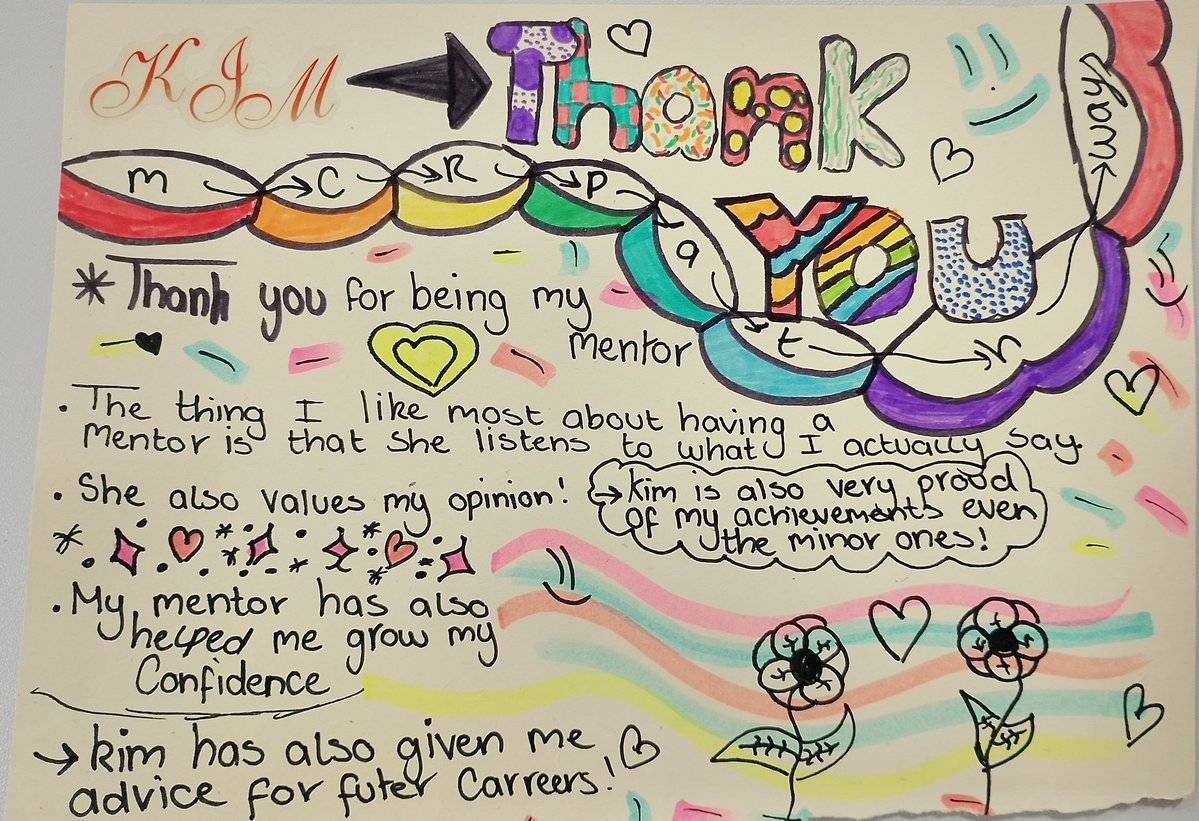 KIM Thank
YOU
M C R P a t h ways
* Thank you for being my
mentor
. The thing I like most about having a
mentor is that she listens to what I actually say.
. She also values my opinion!
→ kim is also very proud
of my achievements even
the minor ones!
. My mentor has also
helped me grow my
Confidence
→ kim has also given me
advice for futer Carreers!